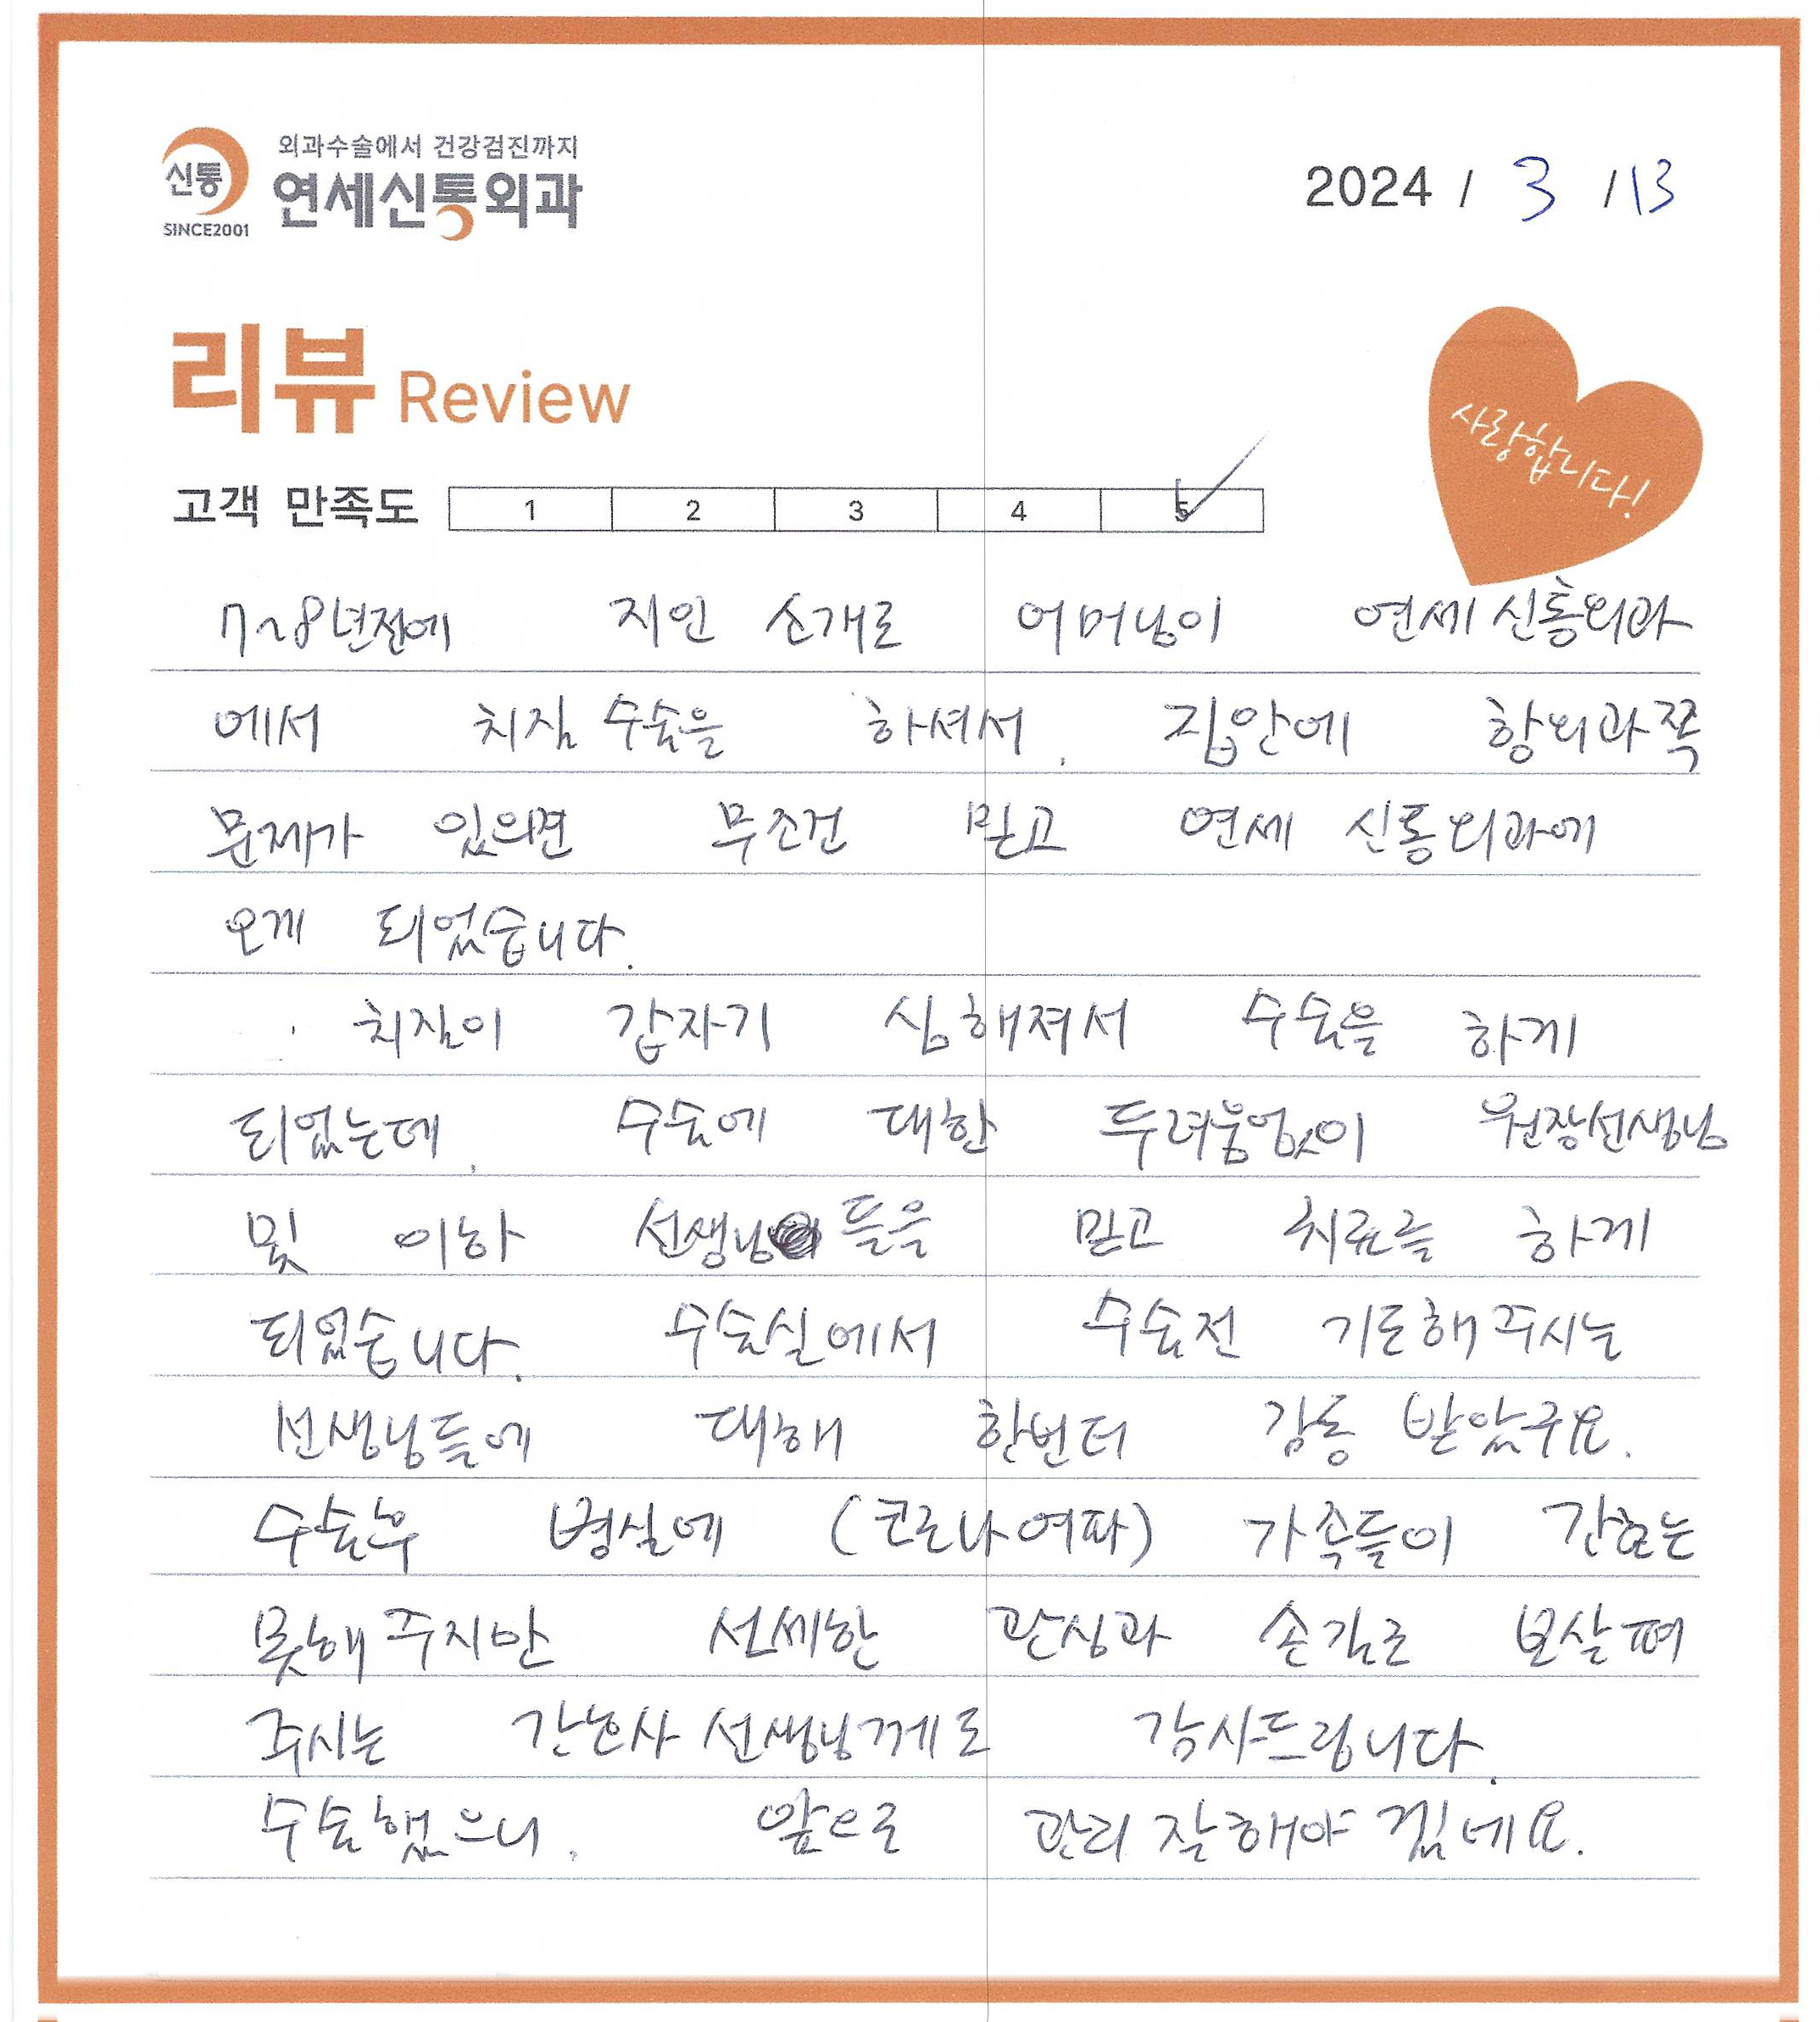 외과수술에서 건강검진까지
신통
연세신통외과
SINCE2001
2024 / 3 / 13
리뷰 Review
사랑합니다!
고객 만족도 1 2 3 4 5
7~8년전에 지인 소개로 어머님이 연세 신통외과
에서 치질 수술을 하셔서, 집안에 항외과쪽
문제가 있으면 무조건 믿고 연세 신통외과에
오게 되었습니다.
치질이 갑자기 심해져서 수술을 하게
되었는데, 수술에 대한 두려움없이 원장선생님
및 이하 선생님들을 믿고 치료를 하게
되었습니다. 수술실에서 수술전 기도해 주시는
선생님들에 대해 한번더 감동 받았구요.
수술후 병실에 (코로나여파) 가족들이 간호는
못해 주지만 섬세한 관심과 손길로 보살펴
주시는 간호사 선생님께도 감사드립니다.
수술했으니, 앞으로 관리 잘해야 겠네요.